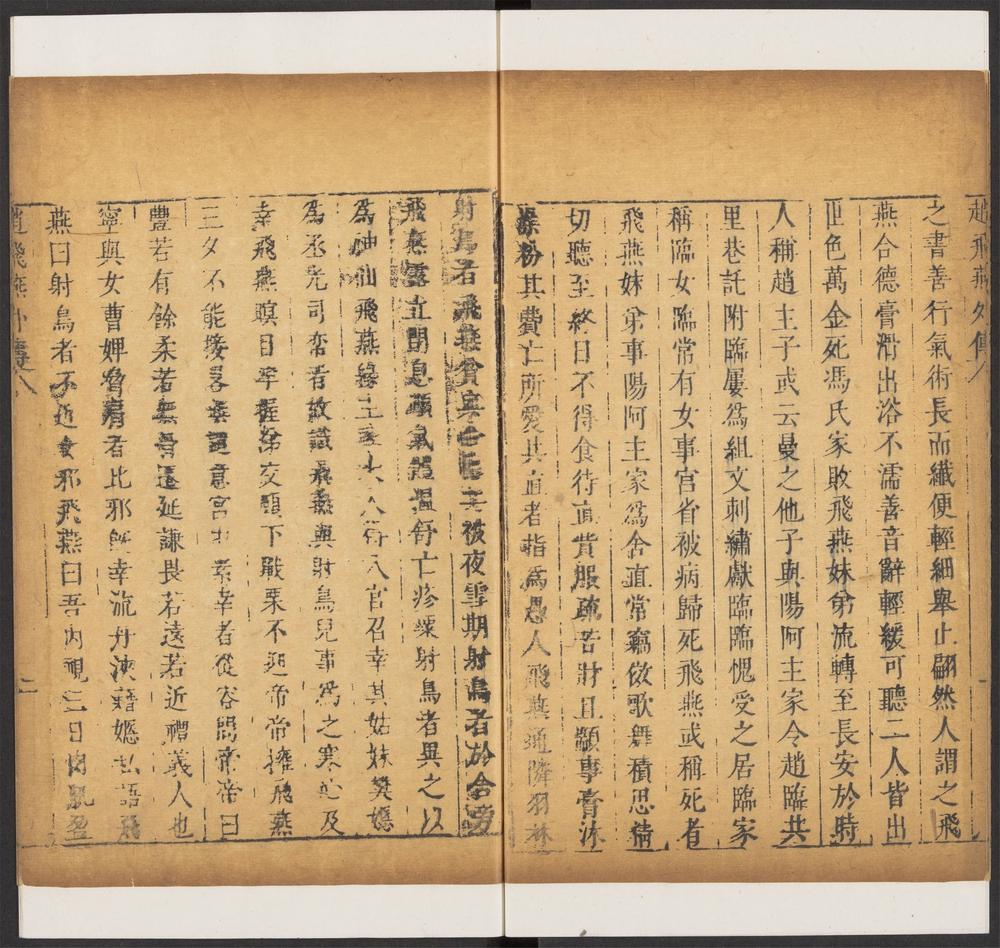 趙飛燕外傳
之書善行氣術長而纖便輕細舉止翩然人謂之飛
燕合德膏滑出浴不濡善音辭輕緩可聽二人皆出
世色萬金死馮氏家敗飛燕妹弟流轉至長安於時
人稱趙主子或云曼之他子與陽阿主家令趙臨共
里巷託附臨屢爲組文刺繡獻臨臨愧受之居臨家
稱臨女臨常有女事宮省被病歸死飛燕或稱死者
飛燕妹弟事陽阿主家爲舍直常竊倣歌舞積思精
切聽至終日不得食待直貲服疏苦財且顓事膏沐
澡粉其費亡所愛共直者指爲愚人飛燕通隣羽林
射鳥者飛燕貧與合德共被夜雪期射鳥者於舍旁
飛燕露立閉息順氣體溫舒亡疹粟射鳥者異之以
爲神仙飛燕緣主家大人得入宮召幸其姑妹樊嫕
爲丞光司帟者故識飛燕與射鳥兒事爲之寒心及
幸飛燕瞑目牢握涕交頤下戰栗不迎帝帝擁飛燕
三夕不能接畧無譴意宮中素幸者從容問帝帝曰
豐若有餘柔若無骨遷延謙畏若遠若近禮義人也
寧與女曹婢脅肩者比邪旣幸流丹浹藉嫕私語飛
燕曰射鳥者不近女邪飛燕曰吾內視三日肉肌盈
趙飛燕外傳
二